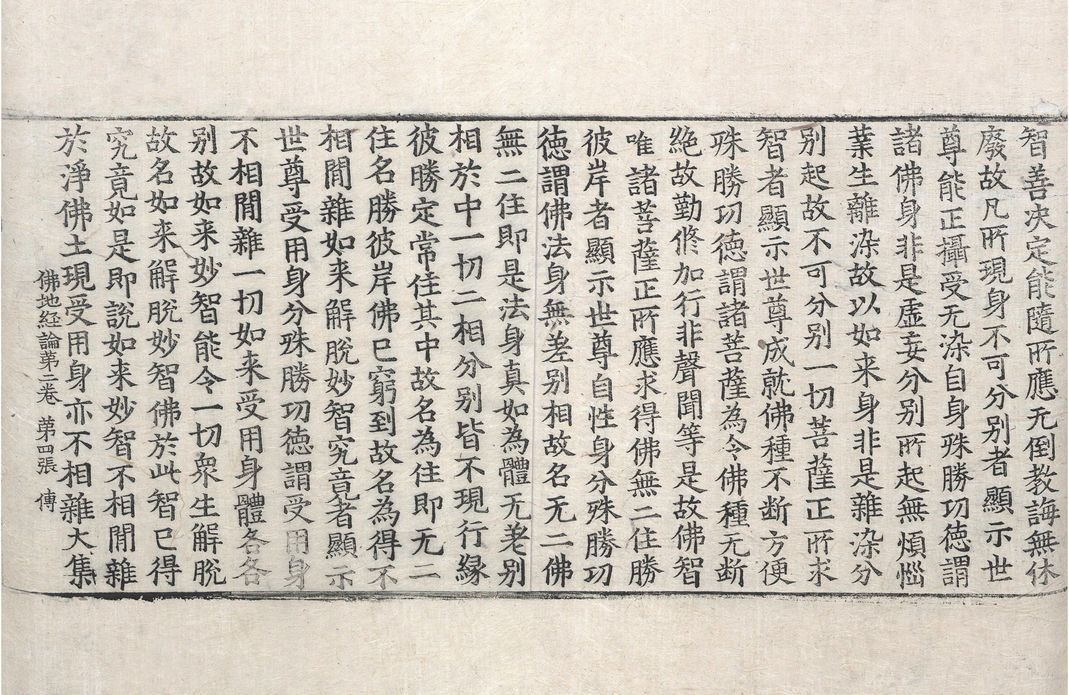 智善决定能隨所應无倒教誨無休
廢故凡所現身不可分別者顯示世
尊能正攝受无染自身殊勝功德謂
諸佛身非是虛妄分別所起無煩惱
業生離染故以如来身非是雜染分
別起故不可分別一切菩薩正所求
智者顯示世尊成就佛種不断方便
殊勝功徳謂諸菩薩為令佛種无断
絕故勤脩加行非聲聞等是故佛智
唯諸菩薩正所應求得佛無二住勝
彼岸者顯示世尊自性身分殊勝功
徳謂佛法身無差别相故名无二佛
無二住即是法身真如為體无差别
相於中一切二相分别皆不現行緣
彼勝定常住其中故名為住即无二
住名勝彼岸佛已窮到故名為得不
相間雜如来解脫妙智究竟者顯示
世尊受用身分殊勝功徳謂受用身
不相間雜一切如来受用身體各各
别故如来妙智能令一切衆生解脫
故名如来解脫妙智佛於此智已得
究竟如是即說如来妙智不相間雜
於淨佛土現受用身亦不相雜大集
佛地経論第二卷 第四張 傳